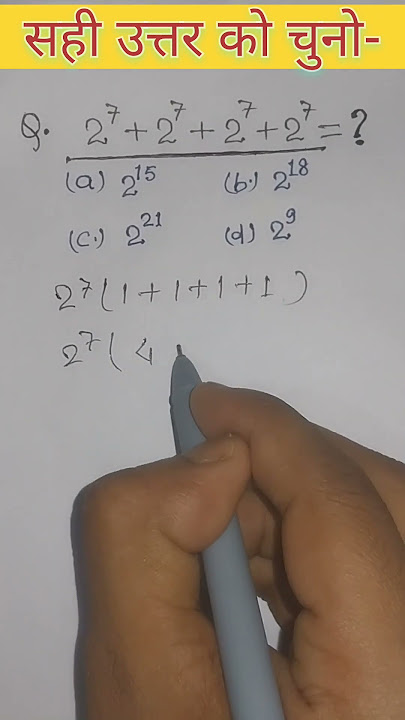 सही उत्तर को चुनो-
Q. 2⁷ + 2⁷ + 2⁷ + 2⁷ = ?
(a) 2¹⁵ (b.) 2¹⁸
(c.) 2²¹ (d) 2⁹
2⁷ ( 1 + 1 + 1 + 1 )
2⁷ ( 4